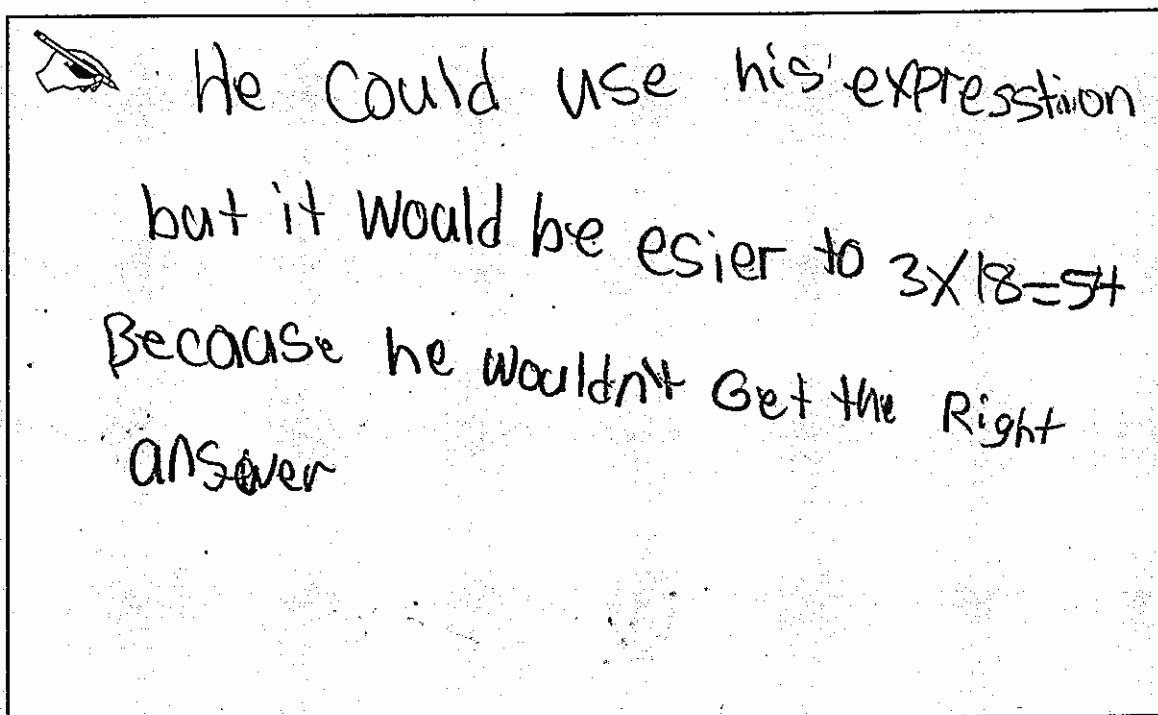 He Could use his expresstion
but it Would be esier to 3X18=54
Because he wouldn't Get the Right
answer